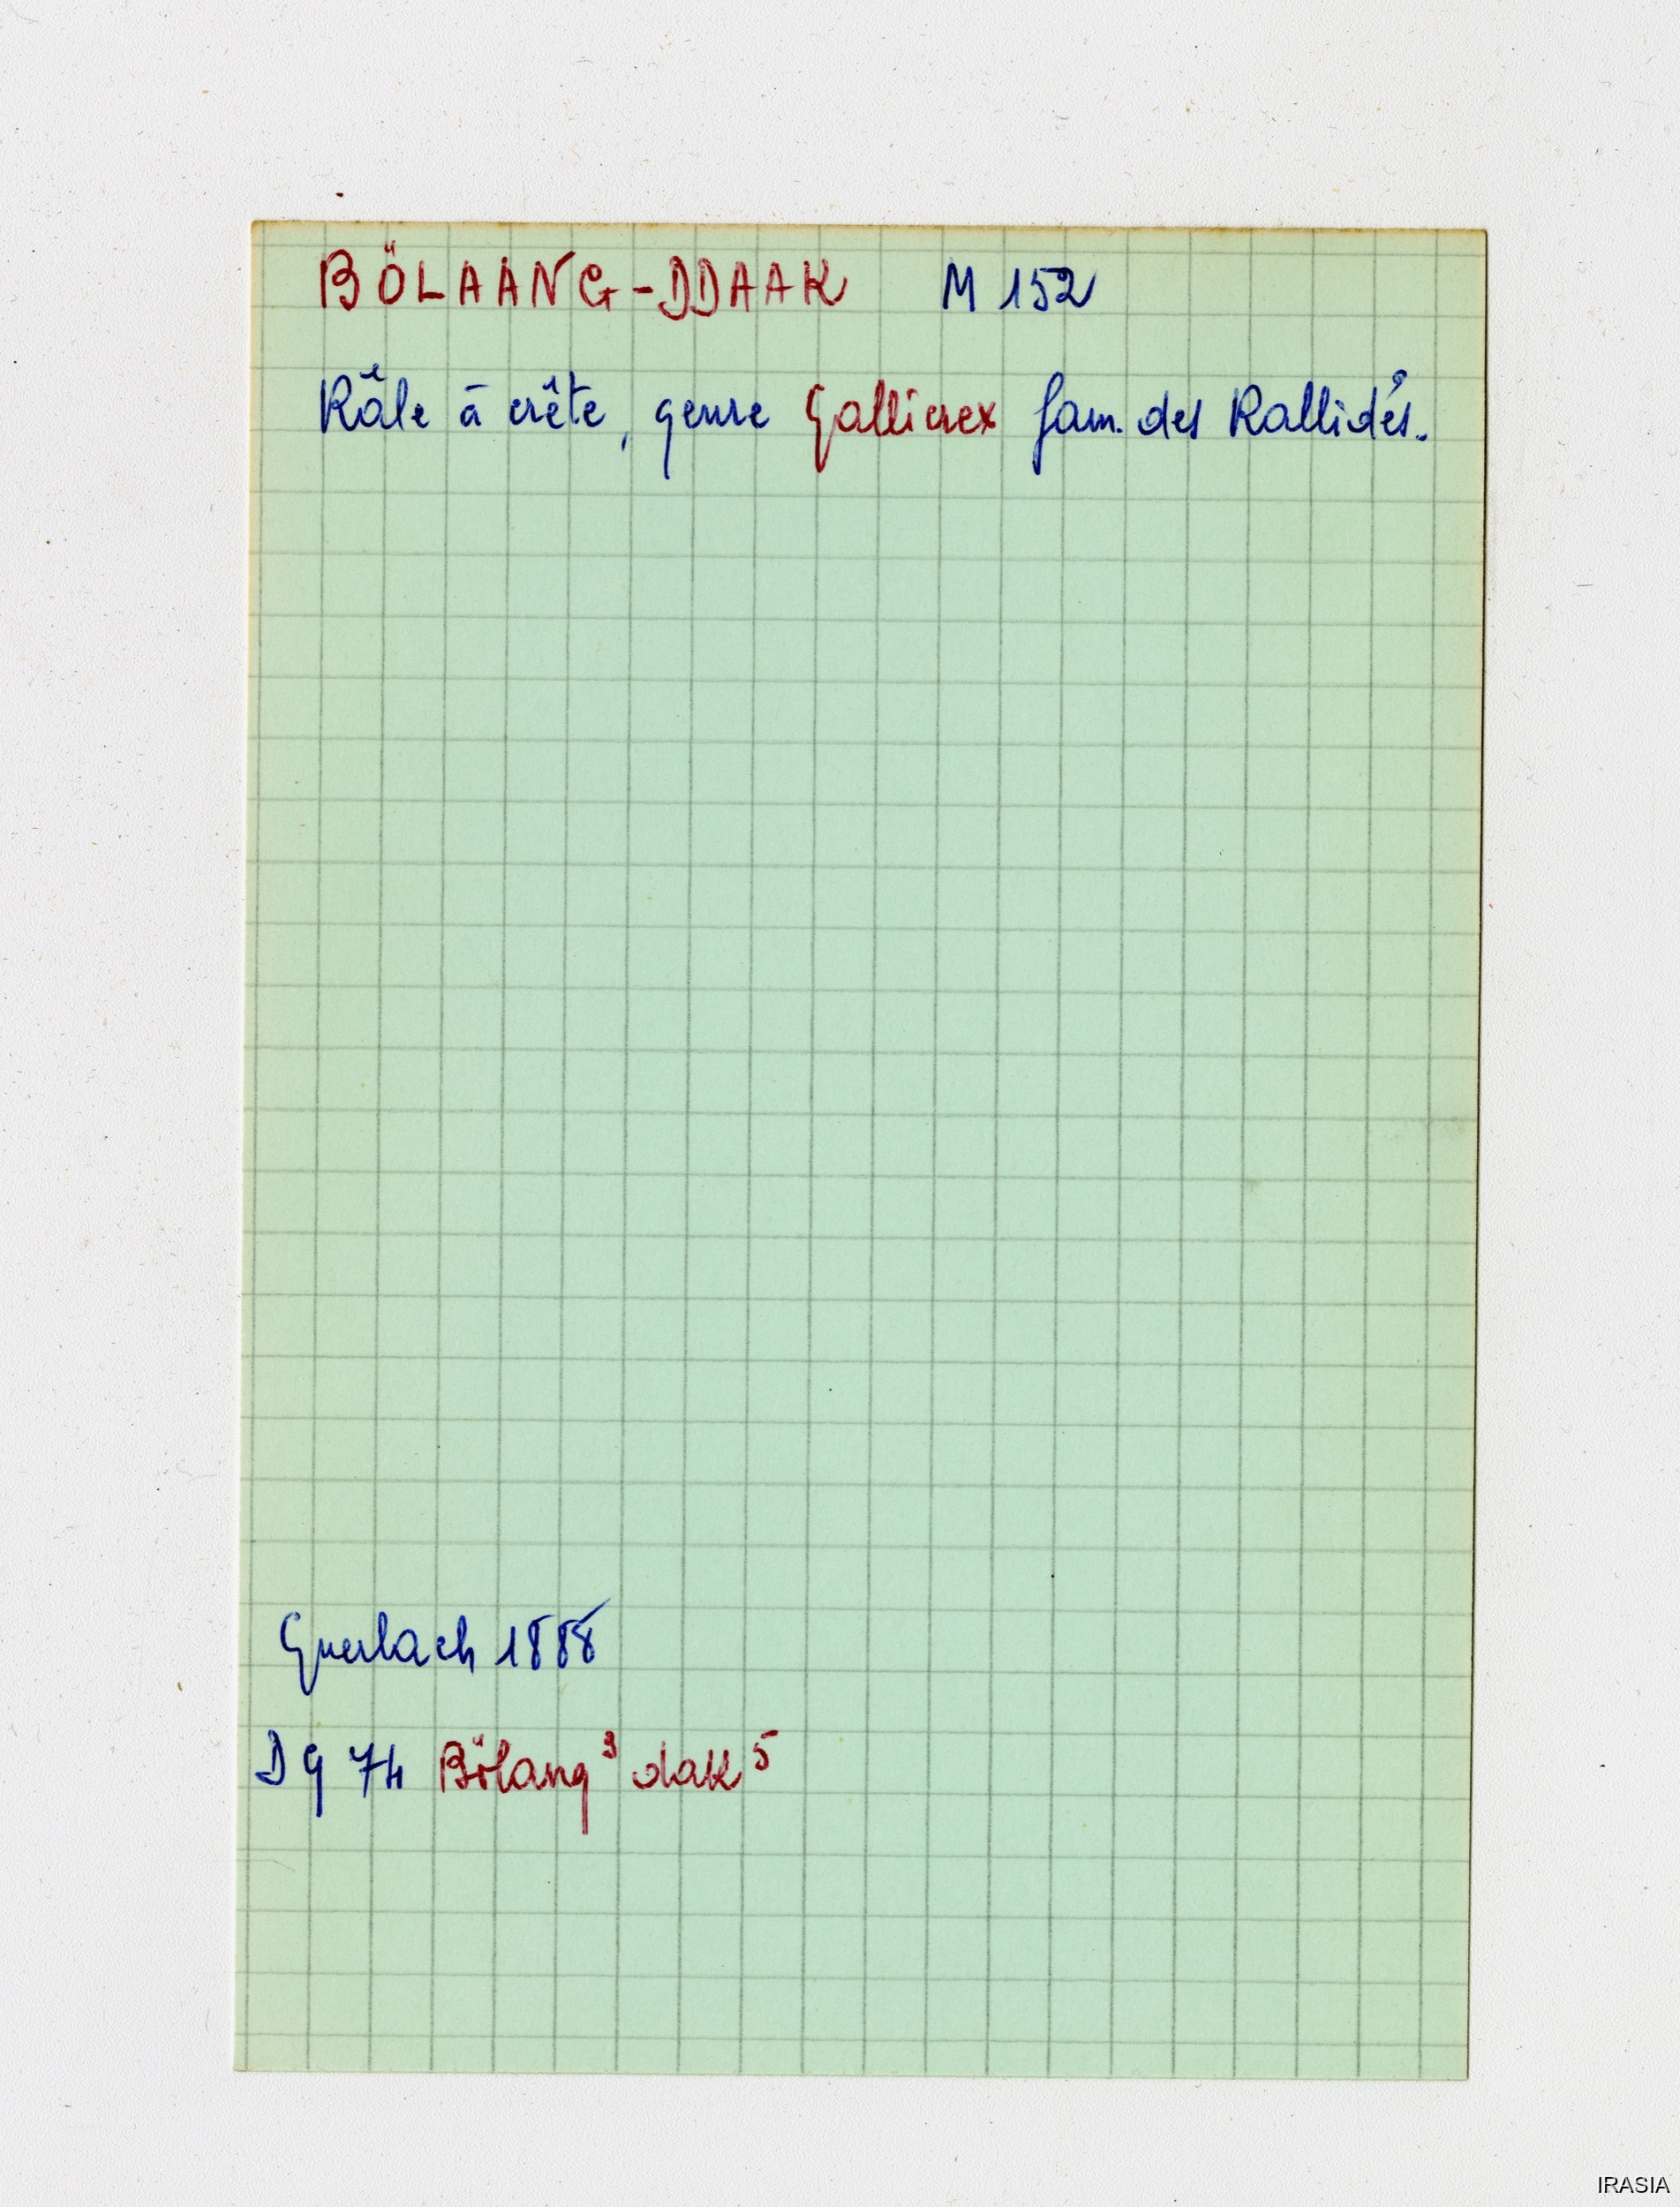 BÖLAANG-DDAAK M 152
Râle à crête, genre Gallicrex fam. des Rallidés.
Guerlach 1888
DG 74 Bölang³ dak⁵
IRASIA